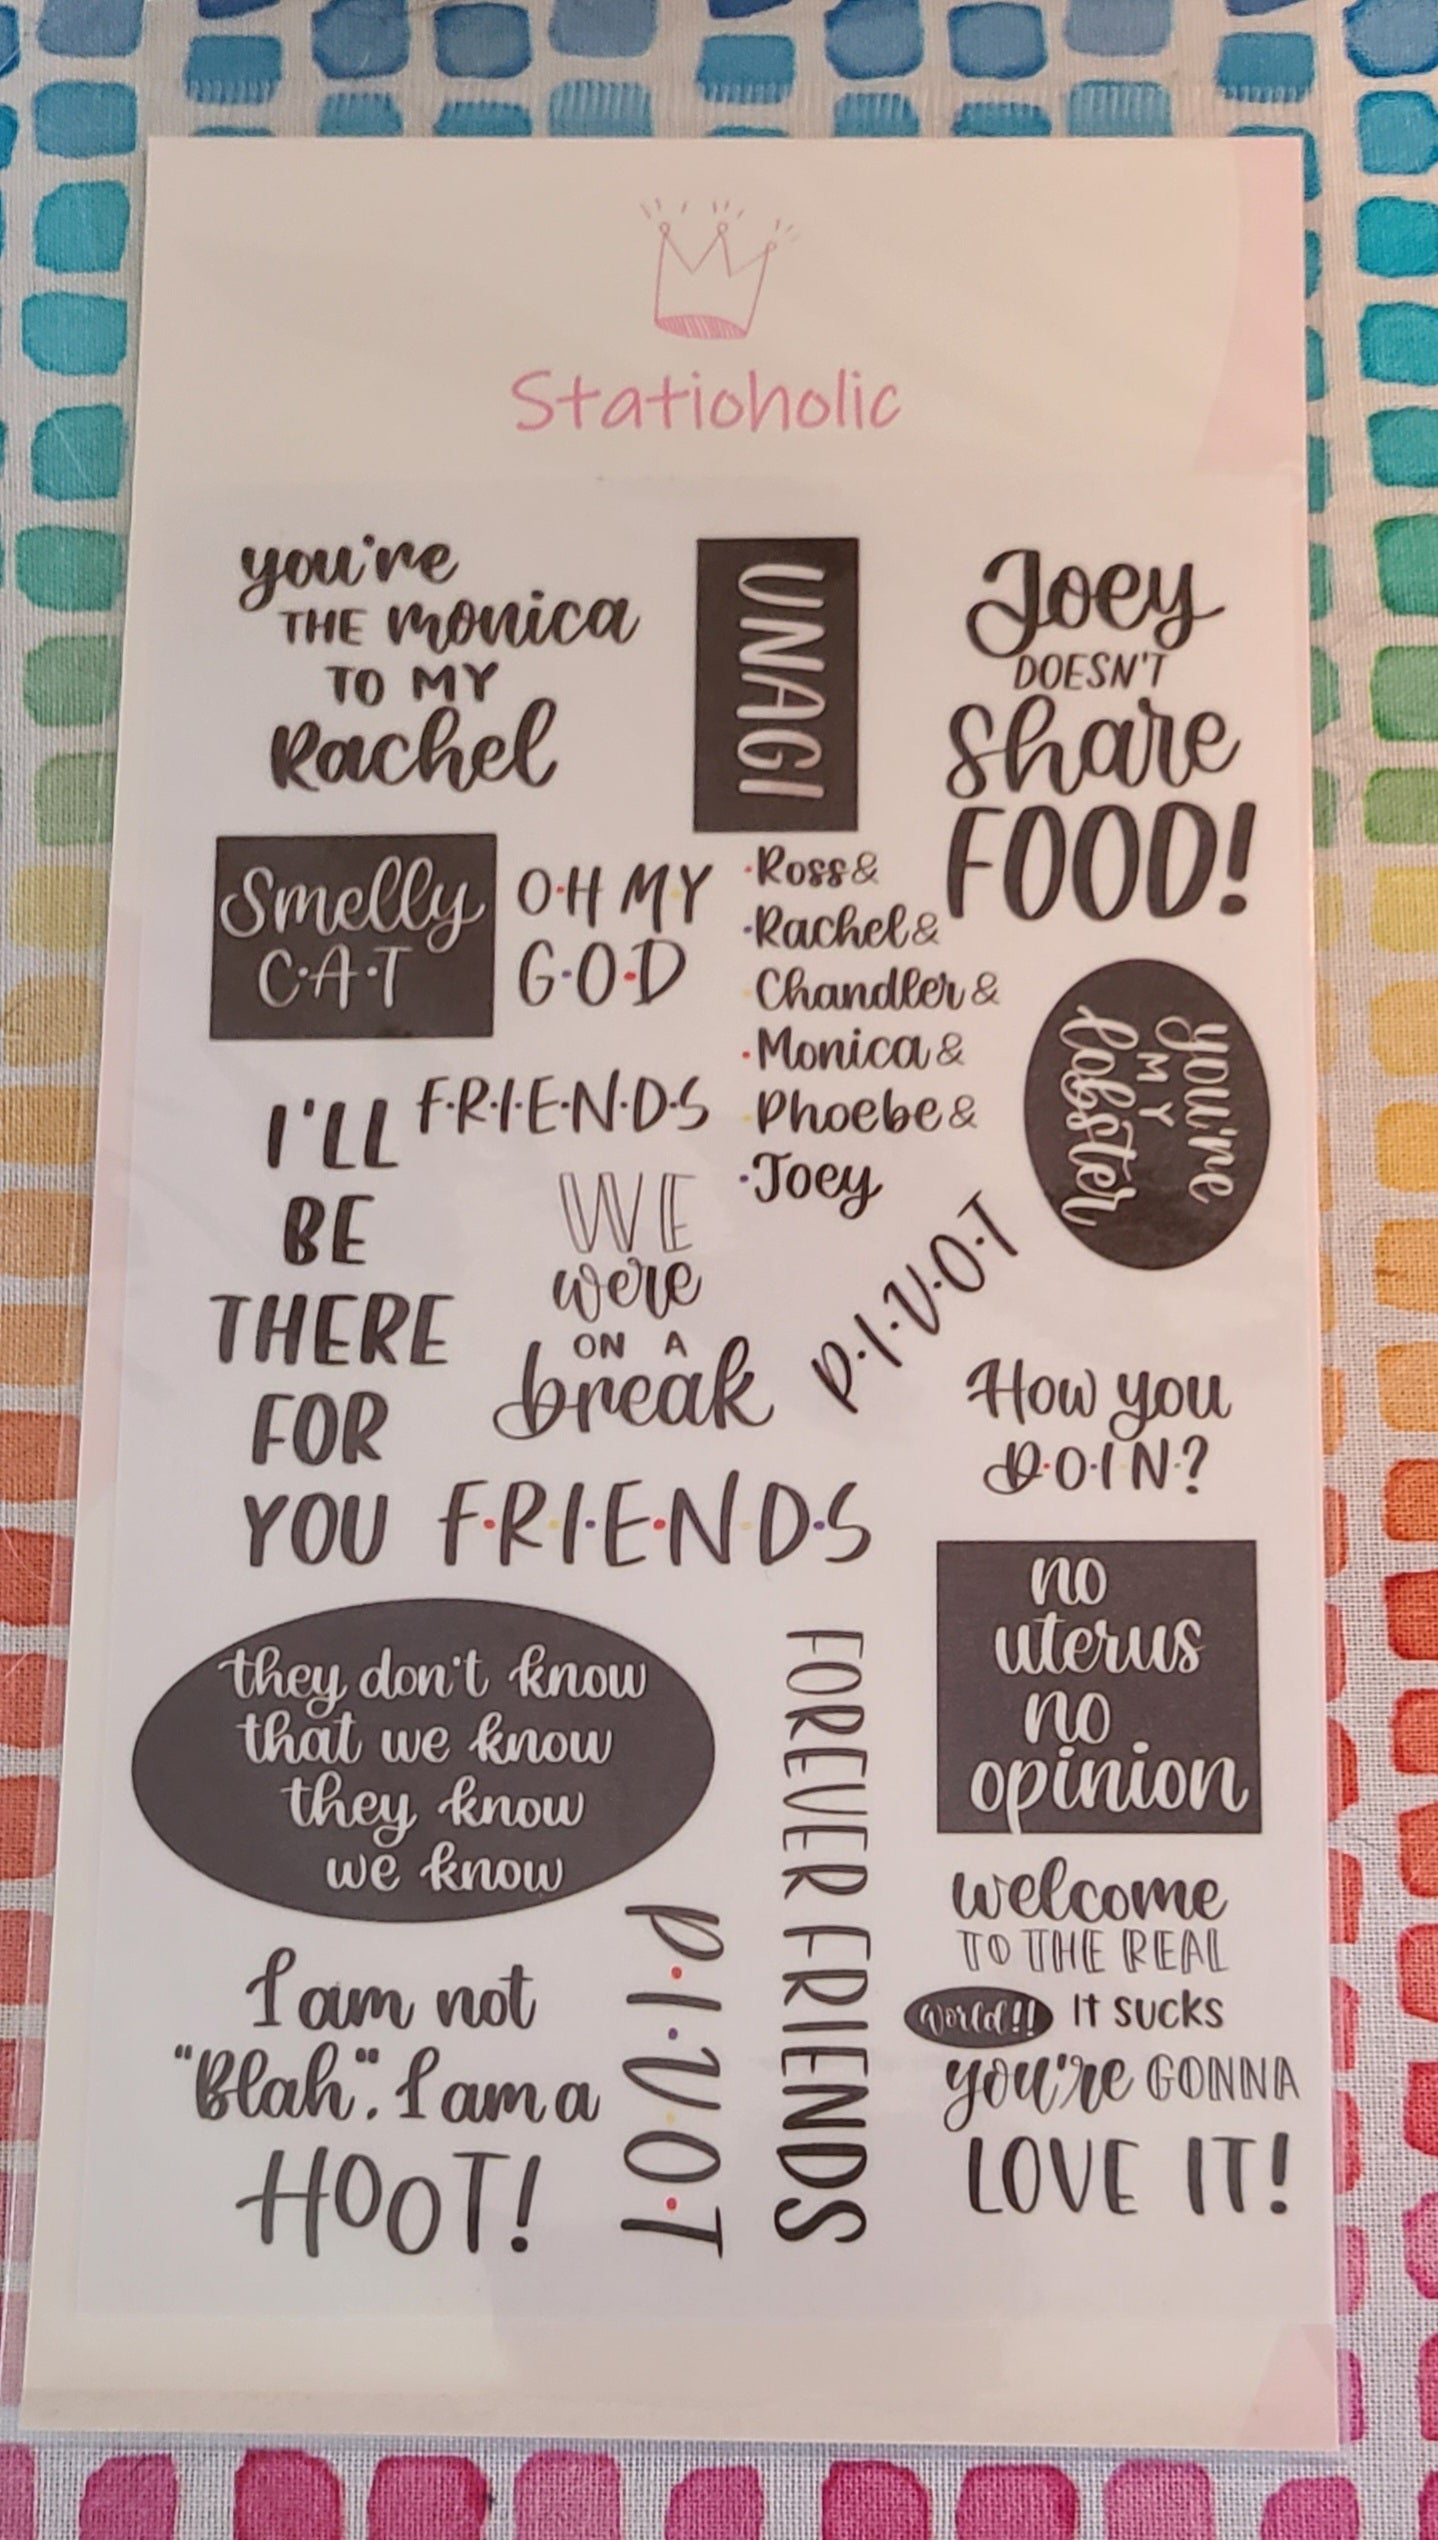 Statioholic
you're
THE monica
TO MY
Rachel
UNAGI
Joey
DOESN'T
Share
FOOD!
Smelly
C·A·T
O·H MY
G·O·D
·Ross&
·Rachel&
Chandler&
·Monica&
Phoebe&
·Joey
you're
MY
lobster
I'LL
BE
THERE
FOR
YOU
F·R·I·E·N·D·S
WE
were
ON A
break
P·I·V·O·T
How you
D·O·I·N·?
F·R·I·E·N·D·S
they don't know
that we know
they know
we know
FOREVER FRIENDS
no
uterus
no
opinion
I am not
"Blah". I am a
HOOT!
P·I·V·O·T
welcome
TO THE REAL
World!! IT SUCKS
you're GONNA
LOVE IT!